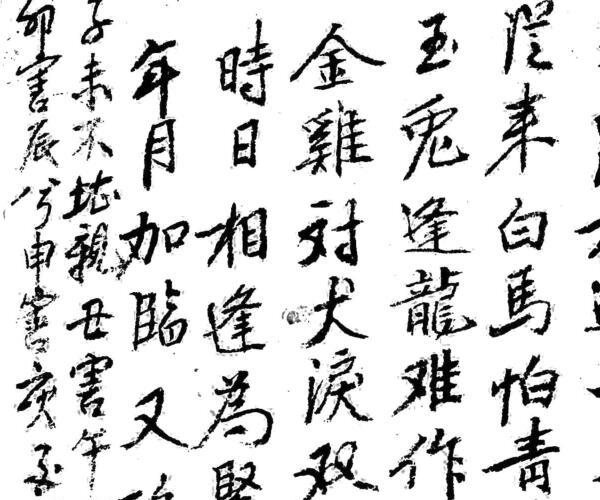 從来白馬怕青
玉兔逢龍难作
金雞対犬淚双
時日相逢為
年月加臨又
子未不堪親丑害午
卯害辰兮申害亥